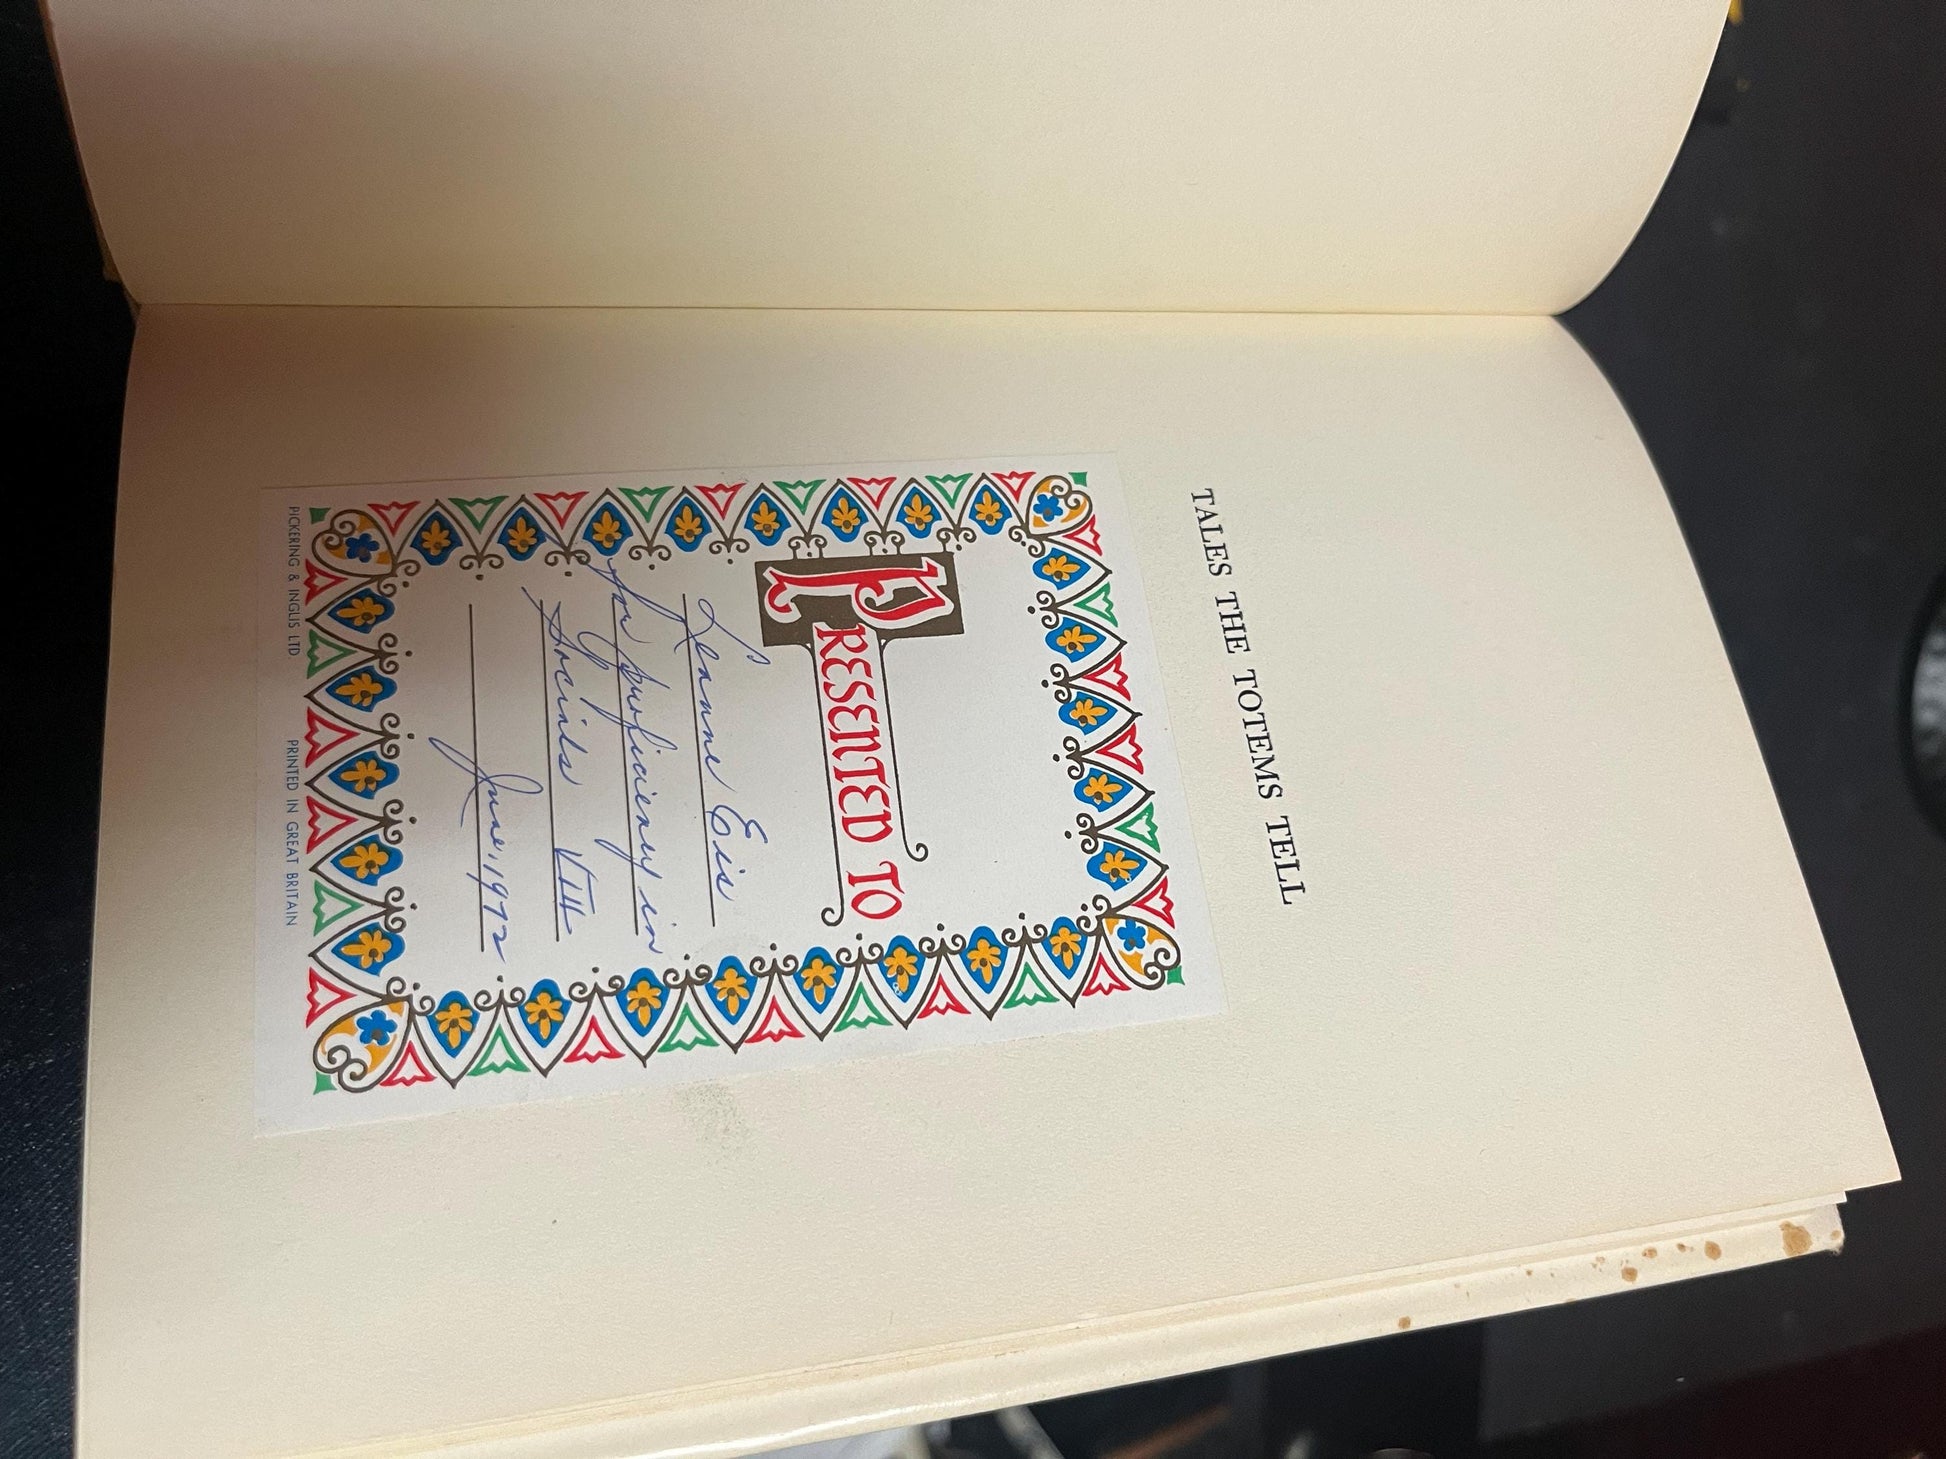 TALES THE TOTEMS TELL
PRESENTED TO
Leanne Eis
for proficiency in
Socials VIII
June, 1972
PICKERING & INGLIS LTD PRINTED IN GREAT BRITAIN